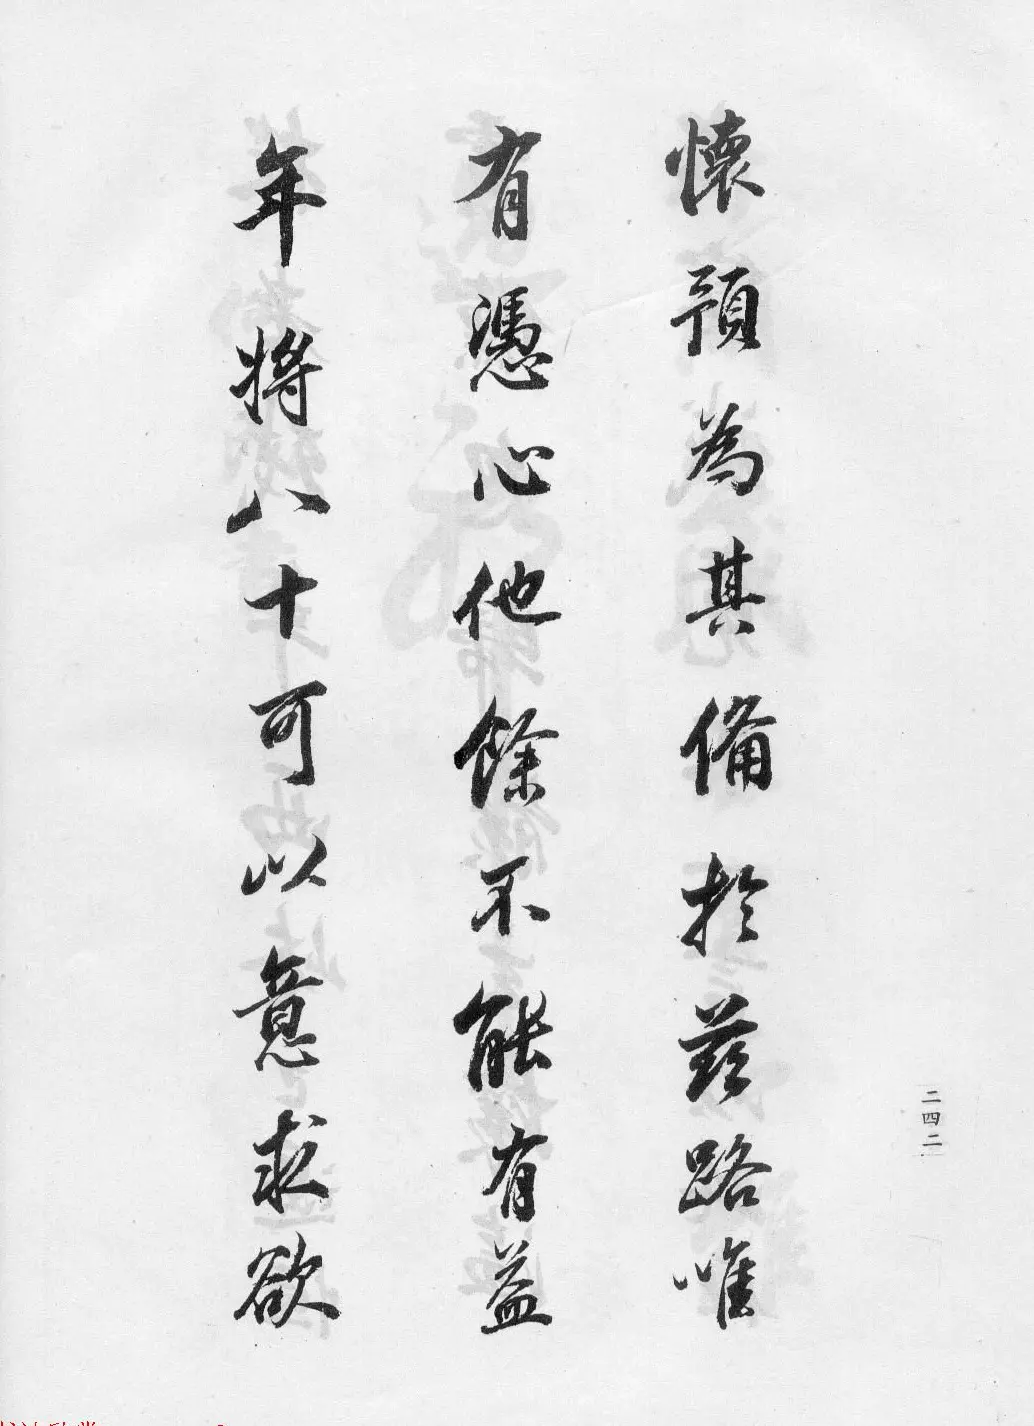 懷預為其備於茲路唯
有憑心他餘不能有益
年將八十可以意求欲
二四二